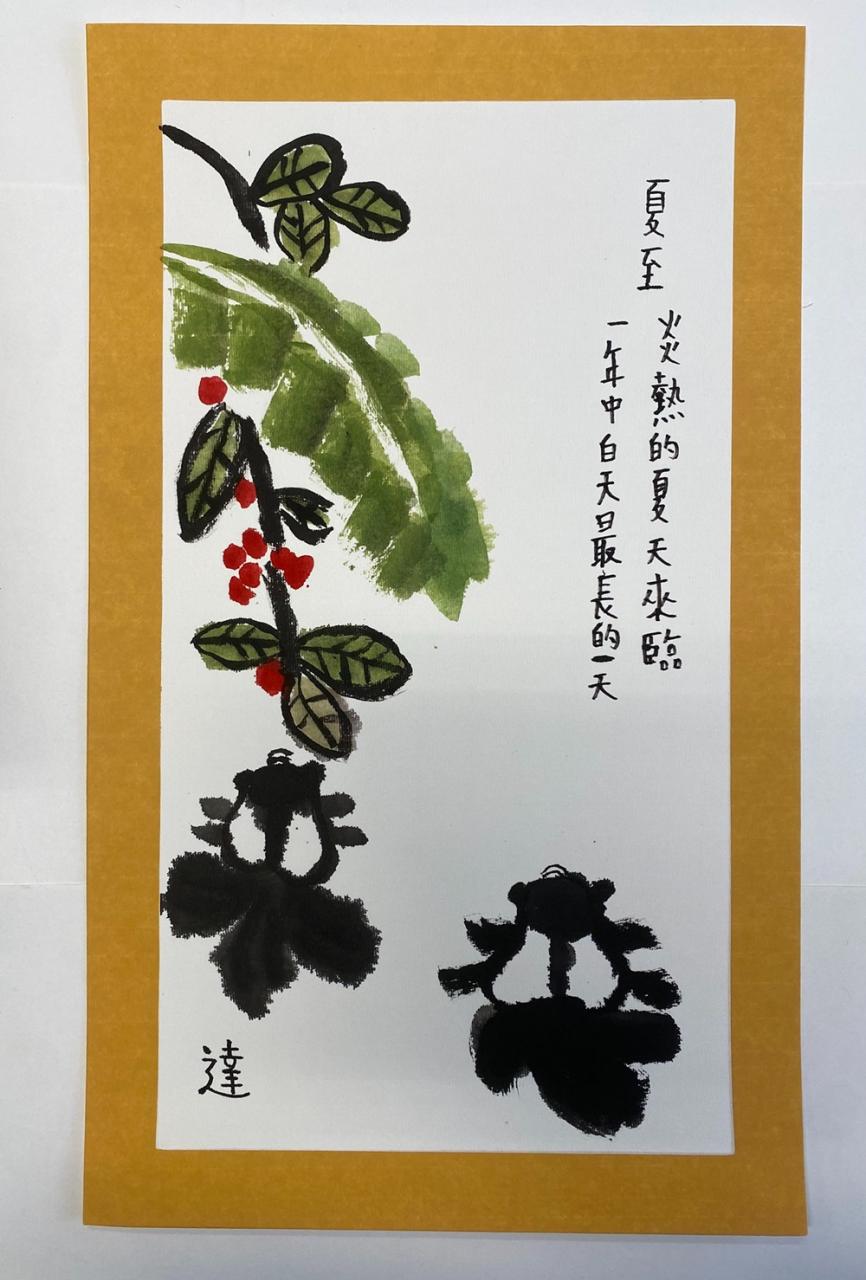 夏至
炎熱的夏天來臨
一年中白天最長的一天
達